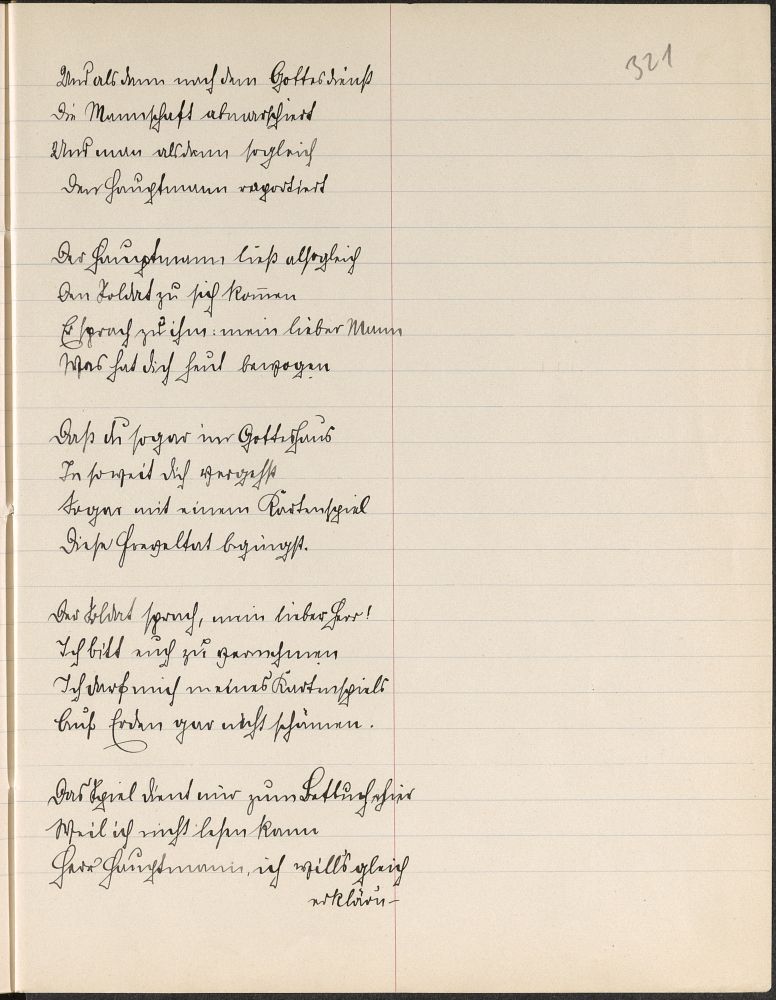 321
Und als dann nach dem Gottesdienst
Die Mannschaft abmarschiert
Und man alsdann sogleich
Den Hauptmann raportiert
Der Hauptmann ließ alsogleich
Den Soldat zu sich kom̅en
Er sprach zu ihm: mein lieber Mann
Was hat dich heut bewogen
Daß du sogar im Gotteshaus
In soweit dich vergehst
Sogar mit einem Kartenspiel
Diese Freveltat begingst.
Der Soldat sprach, mein lieber Herr!
Ich bitt euch zu vernehmen
Ich darf mich meines Kartenspiels
Auf Erden gar nicht schämen.
Das Spiel dient mir zum Betbuch hier
Weil ich nicht lesen kann
Herr Hauptmann, ich will's gleich
erklärn